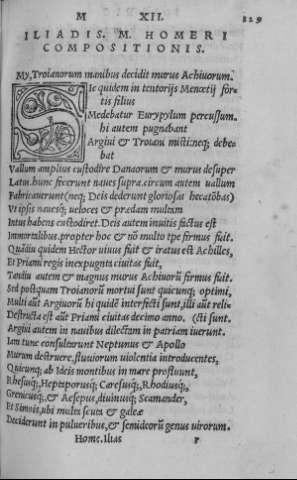 M XII. 129
ILIADIS. M. HOMERI
COMPOSITIONIS.
My, Troianorum manibus decidit murus Achiuorum.
SIc quidem in tentorijs Mencetij for-
tis filius
Medebatur Eurypylum percussum.
hi autem pugnabant
Argiui & Troiani misti: neq; debe-
bat
Vallum amplius custodire Danaorum & murus desuper
Latus. hunc fecerunt naues supra. circum autem uallum
Fabricauerunt (neq; Deis dederunt gloriosas hecatōbas)
Vt ipsis nauesq; ueloces & prædam multam
Intus habens custodiret. Deis autem inuitis factus est
Immortalibus. propter hoc & nō multo tpe firmus fuit.
Quādiu quidem Hector uiuus fuit & iratus est Achilles,
Et Priami regis inexpugnta ciuitas fuit,
Tandiu autem & magnus murus Achiuorū firmus fuit.
Sed postquam Troianorū mortui sunt quicunq; optimi,
Multi aūt Argiuorū hi quidē interfecti sunt, illi aūt reli-
Destructa est aūt Priami ciuitas decimo anno. (cti sunt.
Argiui autem in nauibus dilectam in patriam iuerunt.
Iam tunc consuluerunt Neptunus & Apollo
Murum destruere, fluuiorum uiolentia introducentes,
Quicunq; ab Ideis montibus in mare profluunt,
Rhesusq;, Heptaporusq;, Caresusq;, Rhodiusq;,
Grenicusq;, & Aesepus, diuinusq; Scamander,
Et Simois, ubi multi scuti & galeæ
Deciderunt in pulueribus, & semideorū genus uirorum.
Home. Ilias P